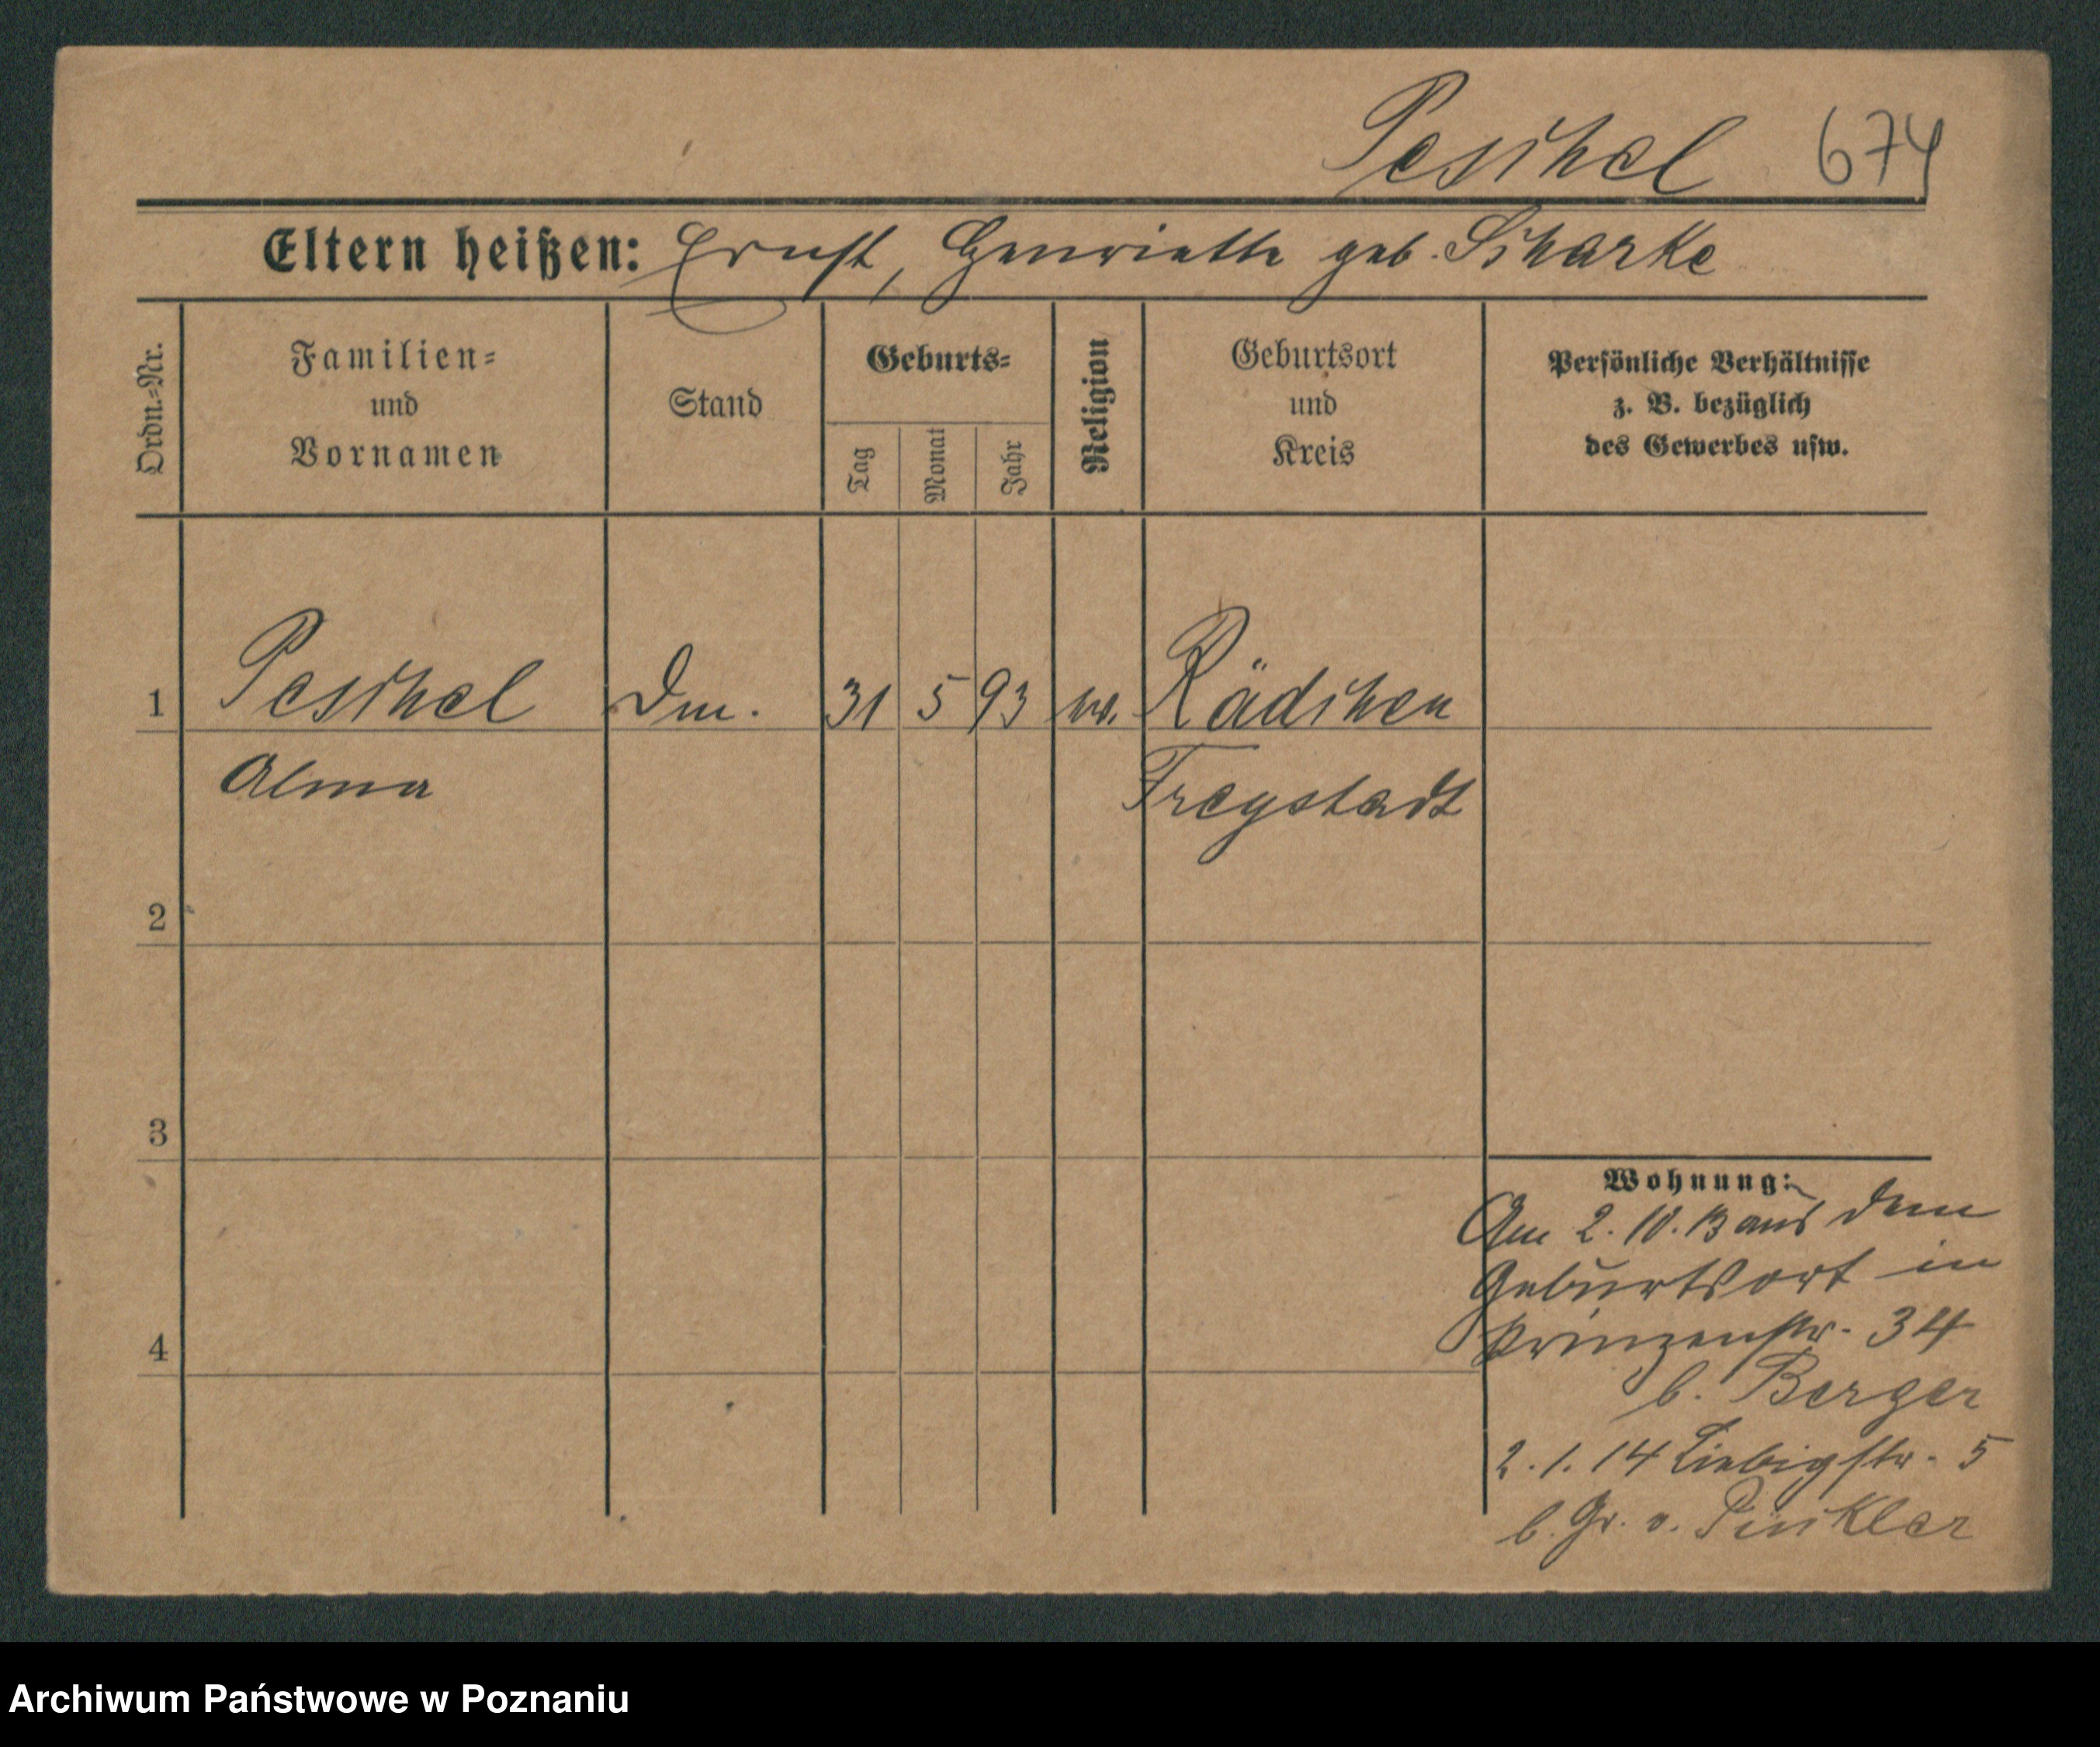 Peschel 674
Eltern heißen: Ernst, Henriette geb. Scharke
Ordn.=Nr.
Familien=
und
Vornamen
Stand
Geburts=
Tag
Monat
Jahr
Religion
Geburtsort
und
Kreis
Persönliche Verhältnisse
z. B. bezüglich
des Gewerbes usw.
1 Peschel Dm. 31 5 93 Rädchen
Alma Freystadt
2
3
4
Wohnung:
Am 2. 10. 13 aus dem
Geburtsort in
Prinzenstr. 34
b. Berger
2. 1. 14 Liebigstr. 5
b. Gr. v.
Archiwum Państwowe w Poznaniu